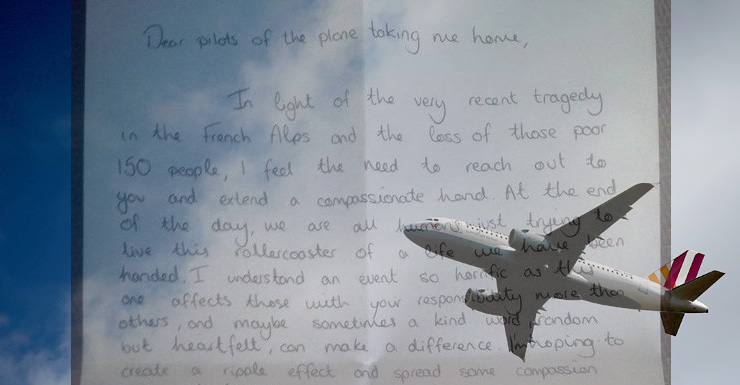 Dear pilots of the plane taking me home,
In light of the very recent tragedy
in the French Alps and the loss of those poor
150 people, I feel the need to reach out to
you and extend a compassionate hand. At the end
of the day, we are all humans just trying to
live this rollercoaster of a life we have been
handed. I understand an event so horrific as this
one affects those with your responsibility more than
others, and maybe sometimes a kind word, random
but heartfelt, can make a difference. I'm hoping to
create a ripple effect and spread some compassion